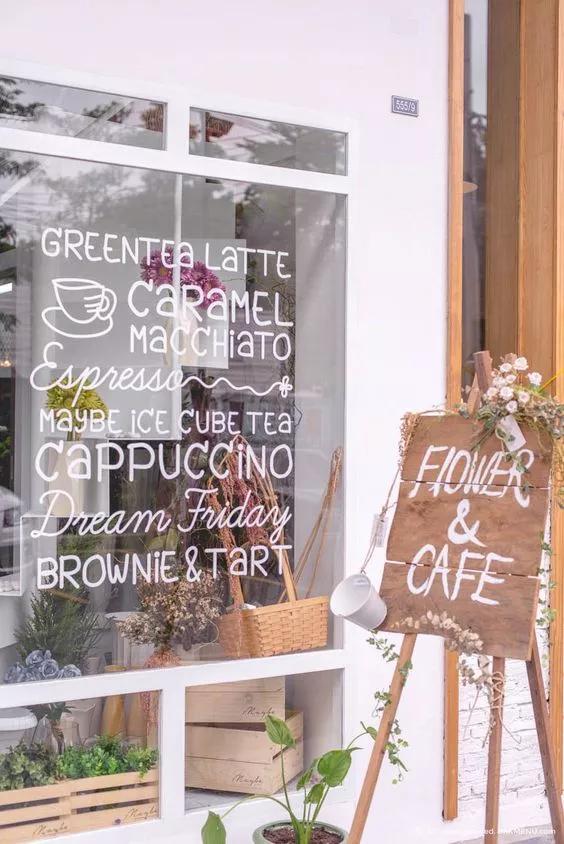 555/9
GREENTEA LATTE
CARAMEL
MACCHIATO
Espresso
MAYBE ICE CUBE TEA
CAPPUCCINO
Dream Friday
BROWNIE & TART
FLOWER
&
CAFE
Maybe
Maybe
Maybe
Maybe